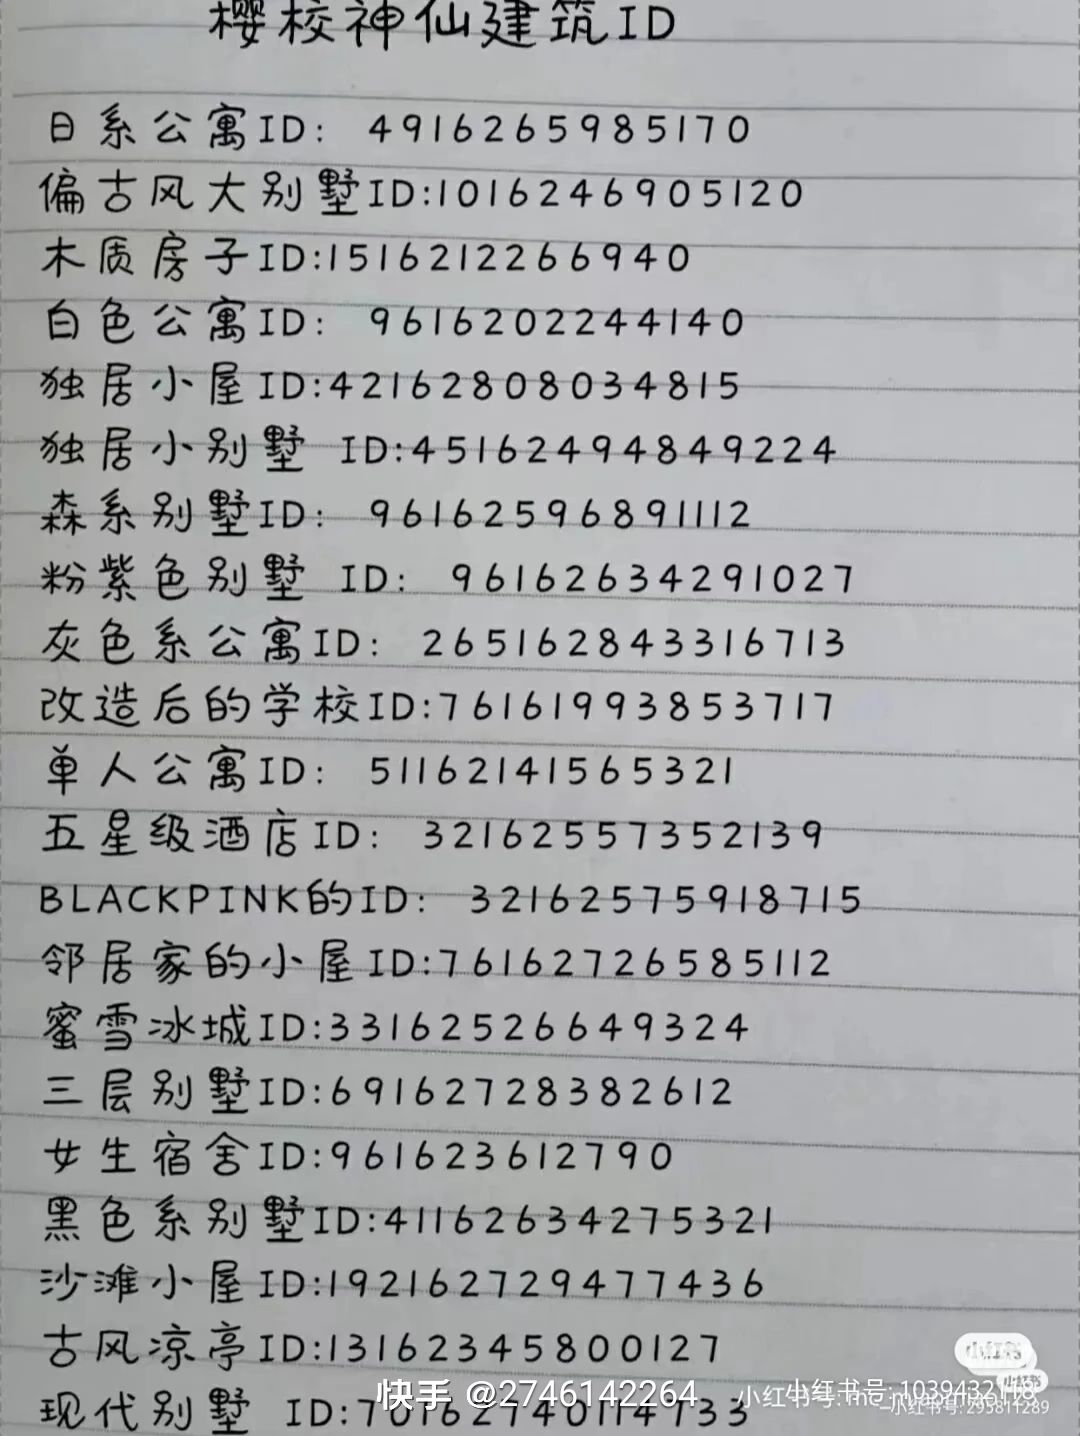 樱校神仙建筑ID
日系公寓ID: 4916265985170
偏古风大别墅ID:1016246905120
木质房子ID:1516212266940
白色公寓ID: 9616202244140
独居小屋ID:42162808034815
独居小别墅 ID:45162494849224
森系别墅ID: 96162596891112
粉紫色别墅 ID: 96162634291027
灰色系公寓ID: 265162843316713
改造后的学校ID:761619938537​17
单人公寓ID: 51162141565321
五星级酒店ID: 32162557352139
BLACKPINK的ID: 32162575918715
邻居家的小屋ID:76162726585112
蜜雪冰城ID:33162526649324
三层别墅ID:69162728382612
女生宿舍ID:961623612790
黑色系别墅ID:41162634275321
沙滩小屋ID:192162729477436
古风凉亭ID:13162345800127
现代别墅 ID:
快手 @2746142264
小红书号: 1039432118
小红书号: 295811289
小红书